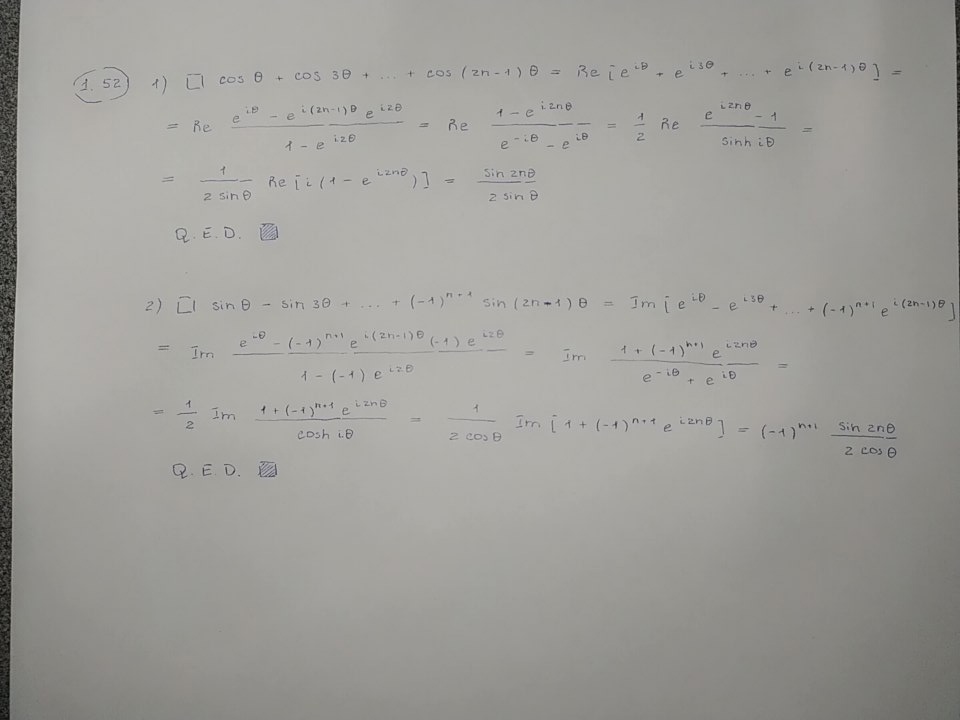 1.52 1) □ cos θ + cos 3θ + ... + cos (2n-1) θ = Re [e^{iθ} + e^{i3θ} + ... + e^{i(2n-1)θ}] =
= Re \frac{e^{iθ} - e^{i(2n-1)θ} e^{i2θ}}{1 - e^{i2θ}} = Re \frac{1 - e^{i2nθ}}{e^{-iθ} - e^{iθ}} = \frac{1}{2} Re \frac{e^{i2nθ} - 1}{sinh iθ} =
= \frac{1}{2 sin θ} Re [i (1 - e^{i2nθ})] = \frac{sin 2nθ}{2 sin θ}
Q.E.D.
2) □ sin θ - sin 3θ + ... + (-1)^{n+1} sin (2n-1) θ = Im [e^{iθ} - e^{i3θ} + ... + (-1)^{n+1} e^{i(2n-1)θ}]
= Im \frac{e^{iθ} - (-1)^{n+1} e^{i(2n-1)θ} (-1) e^{i2θ}}{1 - (-1) e^{i2θ}} = Im \frac{1 + (-1)^{n+1} e^{i2nθ}}{e^{-iθ} + e^{iθ}} =
= \frac{1}{2} Im \frac{1 + (-1)^{n+1} e^{i2nθ}}{cosh iθ} = \frac{1}{2 cos θ} Im [1 + (-1)^{n+1} e^{i2nθ}] = (-1)^{n+1} \frac{sin 2nθ}{2 cos θ}
Q.E.D.